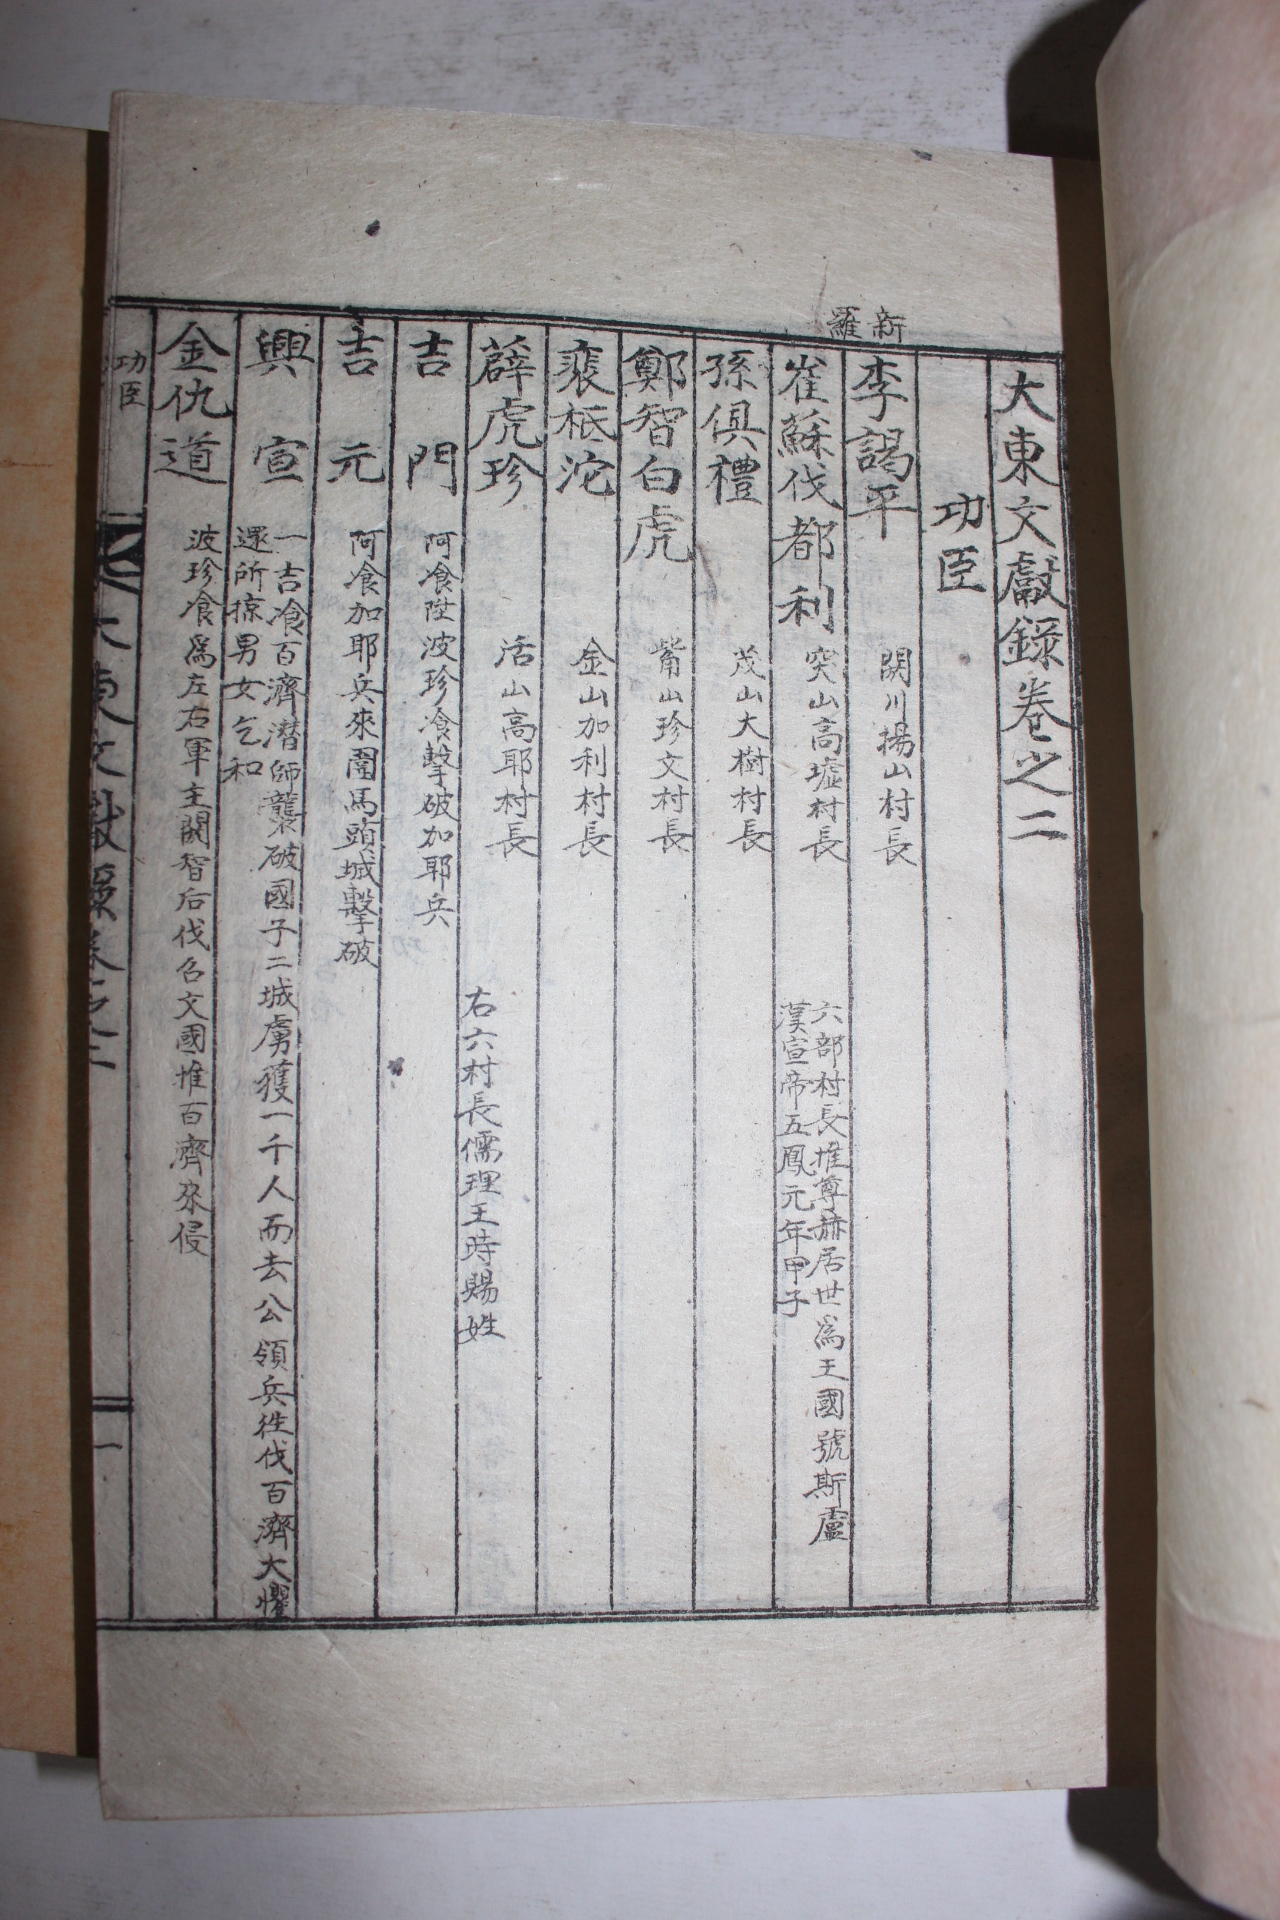 大東文獻錄卷之二
功臣
新羅
李謁平 閼川揚山村長
崔蘇伐都利 突山高墟村長 六部村長推尊赫居世爲王國號斯盧
漢宣帝五鳳元年甲子
孫俱禮 茂山大樹村長
鄭智白虎 觜山珍文村長
裵秖沱 金山加利村長
薛虎珍 活山高耶村長 右六村長儒理王時賜姓
吉門 阿飡陞波珍飡擊破加耶兵
吉元 阿飡加耶兵來圍馬頭城擊破
興宣 一吉飡百濟潛師襲破國子二城虜獲一千人而去公領兵徃伐百濟大懼
還所掠男女乞和
金仇道 波珍飡爲左右軍主閼智后伐召文國推百濟來侵
功臣
大東文獻錄卷之二
一